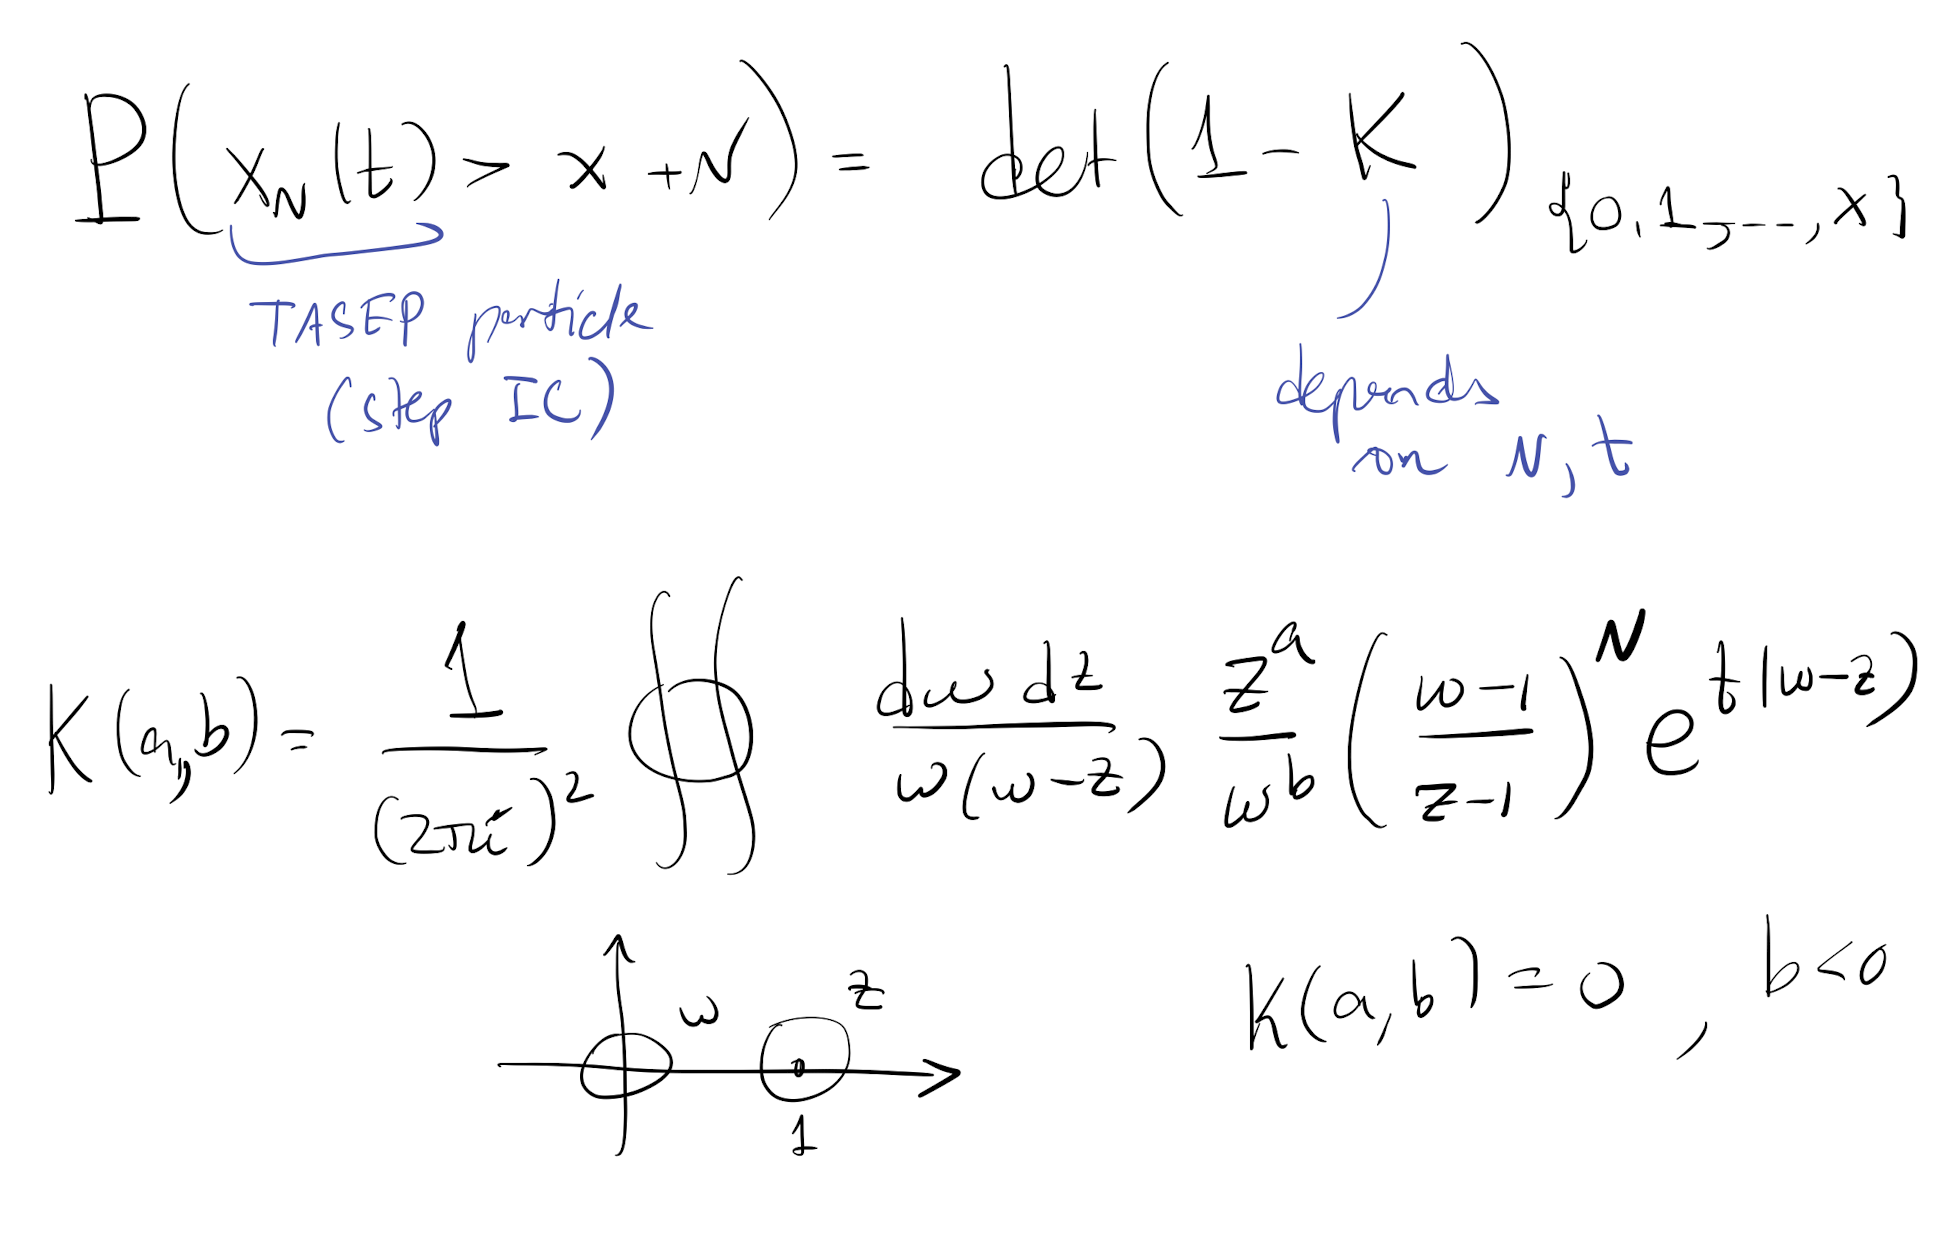 P(x_N(t) > x + N) = det(1 - K)_{0,1,...,x}
TASEP particle
(step IC)
depends
on N, t
K(a,b) = 1/(2πi)^2 ∮∮ dw dz/(w(w-z)) z^a/w^b ((w-1)/(z-1))^N e^{t(w-z)}
w z
1
K(a,b) = 0, b<0